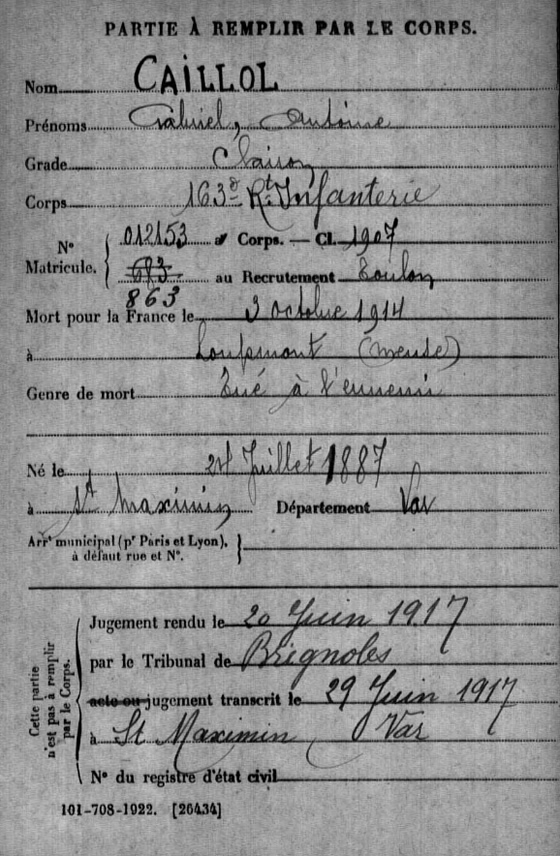 PARTIE À REMPLIR PAR LE CORPS.
Nom CAILLOL
Prénoms Gabriel, Antoine
Grade Clairon
Corps 163e Rt. Infanterie
N° Matricule. 012153 au Corps. — Cl. 1907
693 au Recrutement Toulon
863
Mort pour la France le 3 octobre 1914
à Loupmont (Meuse)
Genre de mort Tué à l'ennemi
Né le Juillet 1887
à St Maximin Département Var
Arrt municipal (pr Paris et Lyon), à défaut rue et N°.
Cette partie n'est pas à remplir par le Corps.
Jugement rendu le 20 Juin 1917
par le Tribunal de Brignoles
acte ou jugement transcrit le 29 Juin 1917
à St Maximin Var
N° du registre d'état civil
101-708-1922. [26434]